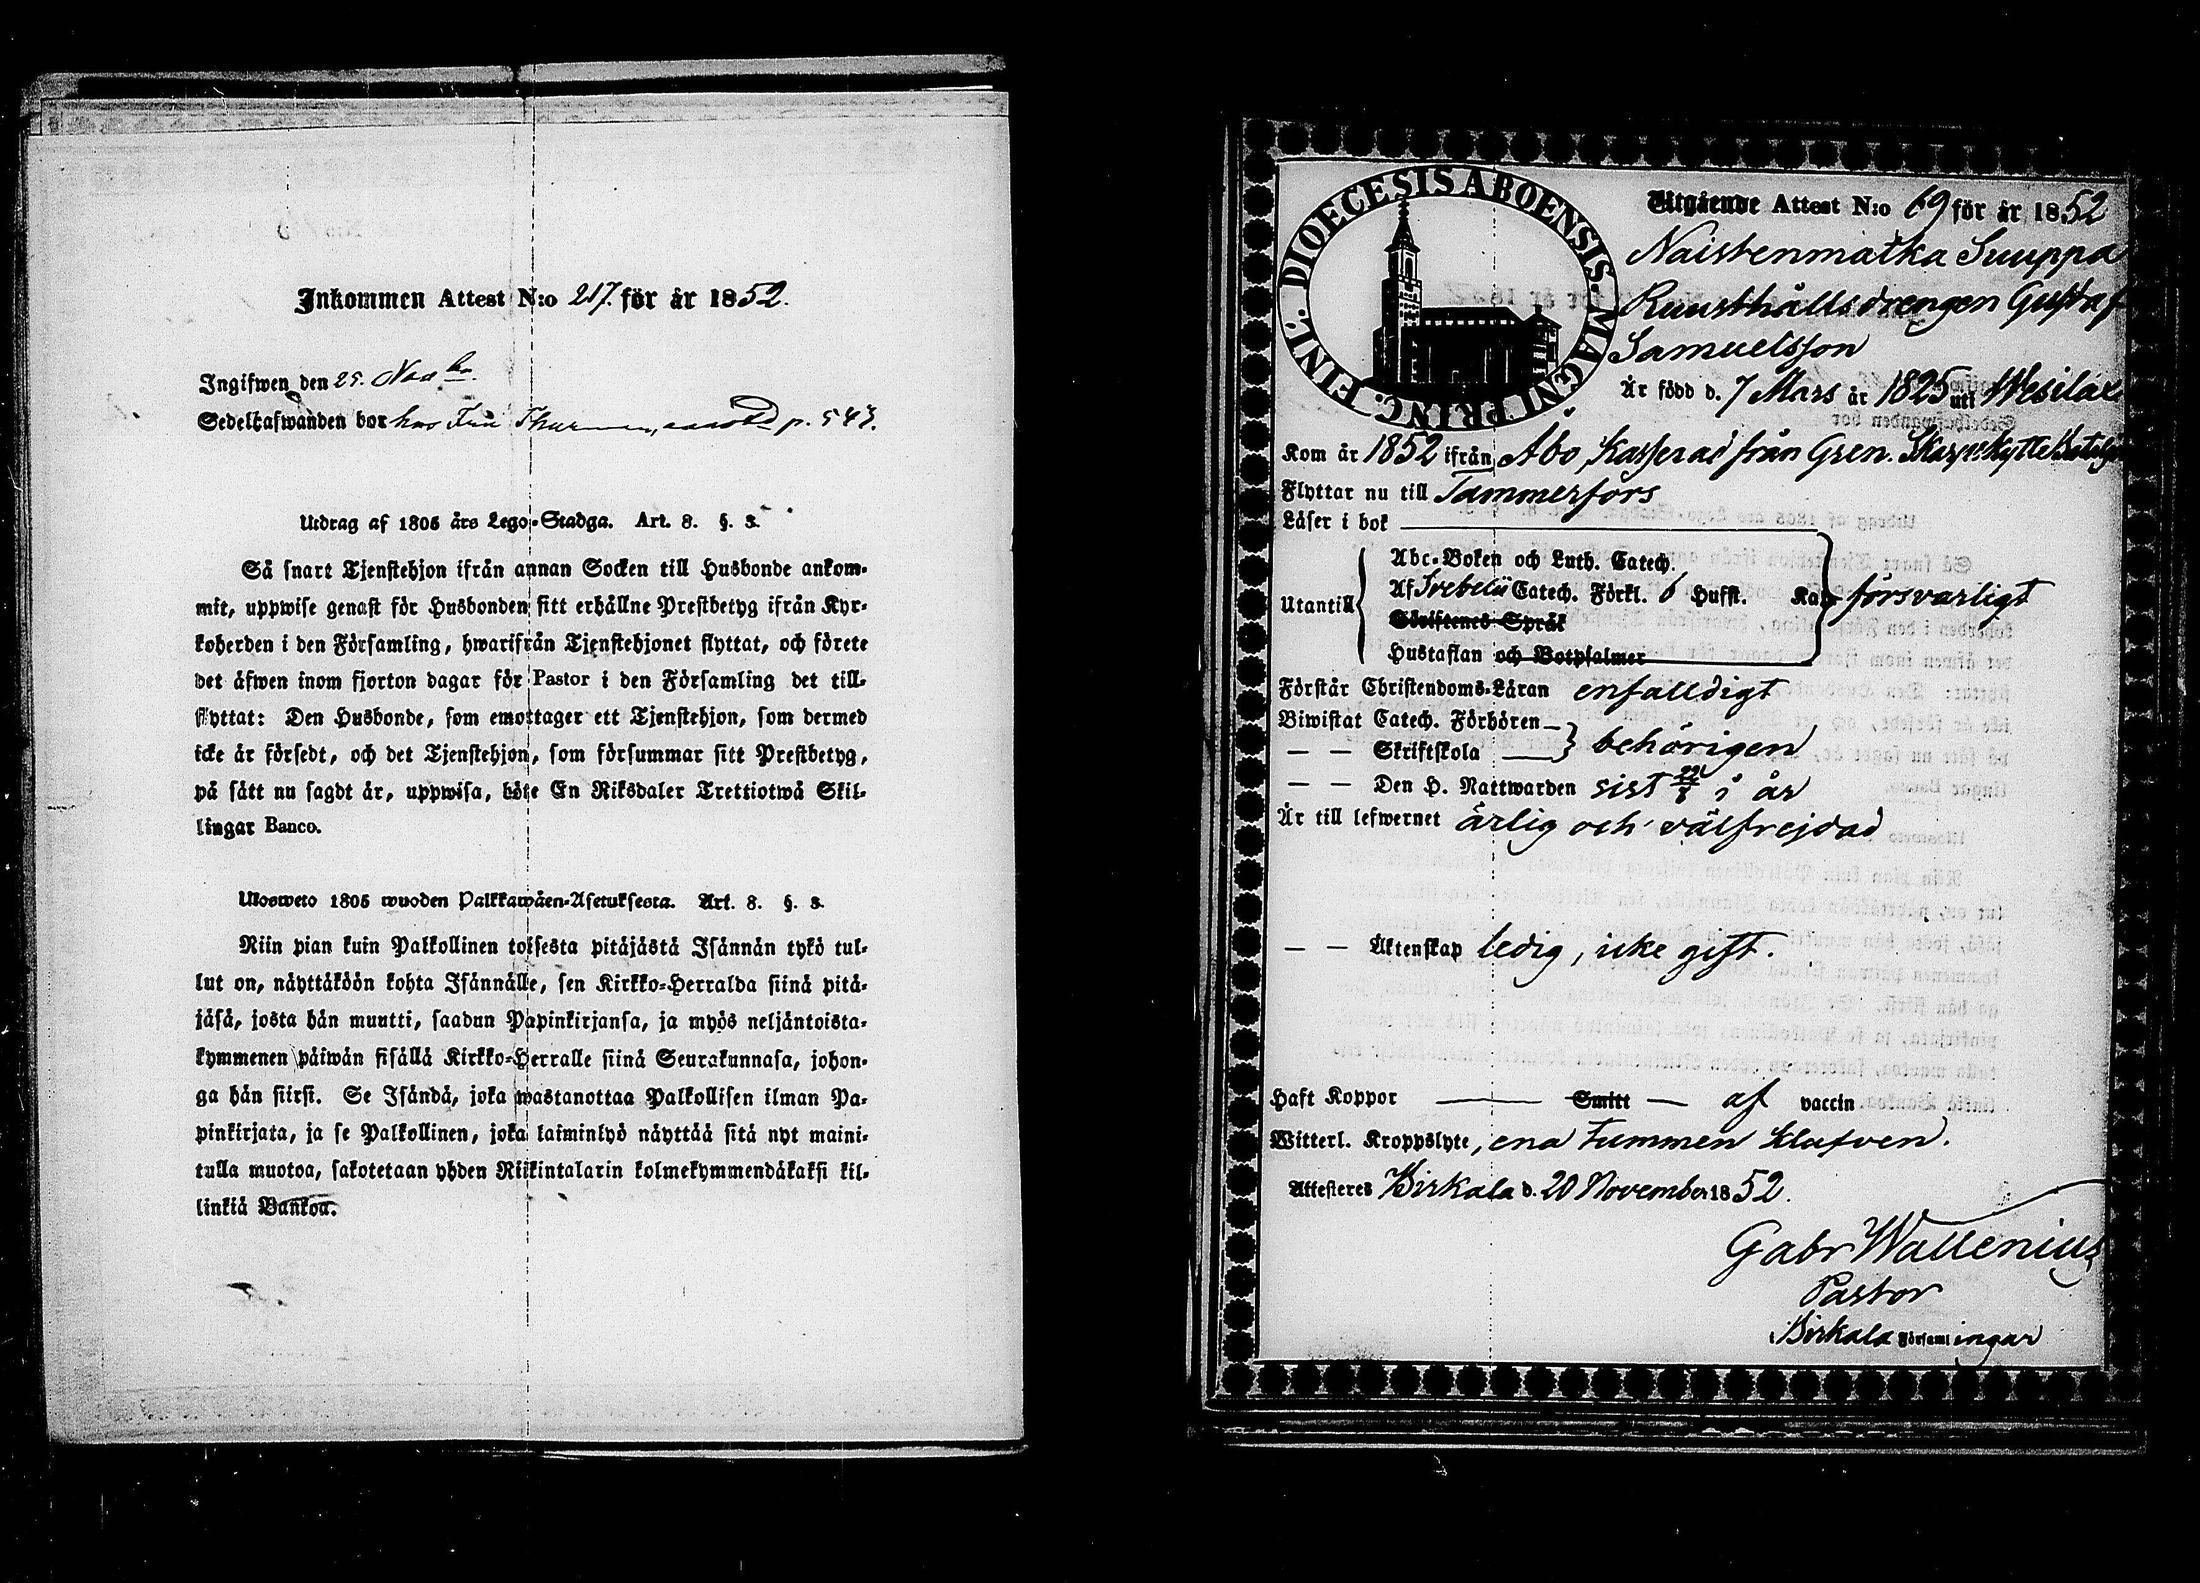 Inkommen Attest N:o 217. för år 1852.
Ingifwen den 25. Nov br.
Sedelhafwanden bor hos Fru p. 543.
Utdrag af 1805 års Lego-Stadga. Art. 8. §. 3.
Så snart Tjenstehjon ifrån annan Socken till Husbonde ankom-
mit, uppwise genast för Husbonden sitt erhållne Prestbetyg ifrån Kyr-
koherden i den Församling, hwarifrån Tjenstehjonet flyttat, och förete
det äfwen inom fjorton dagar för Pastor i den Församling det till-
flyttat: Den Husbonde, som emottager ett Tjenstehjon, som dermed
icke är försedt, och det Tjenstehjon, som försummar sitt Prestbetyg,
på sätt nu sagdt är, uppwisa, böte En Riksdaler Trettiotwå Skil-
lingar Banco.
Ulosweto 1805 wuoden Palkkawäen-Asetuksesta. Art. 8. §. 3.
Niin pian kuin Palkollinen toisesta pitäjästä Isännän tykö tul-
lut on, näyttäköön kohta Isännälle, sen Kirkko-Herralda siinä pitä-
jäsä, josta hän muutti, saadun Papinkirjansa, ja myös neljäntoista-
kymmenen päiwän sisällä Kirkko-Herralle siinä Seurakunnasa, johon-
ga hän siirsi. Se Isändä, joka wastanottaa Palkollisen ilman Pa-
pinkirjata, ja se Palkollinen, joka laiminlyö näyttää sitä nyt maini-
tulla muotoa, sakotetaan yhden Riikintalarin kolmekymmendäkaksi kil-
linkiä Bankoa.
DIOECESIS ABOENSIS. MAGNI PRINC. FINL.
Utgående Attest N:o 69 för år 1852
Naistenmatka Suuppa
Rusthållsdrengen Gustaf
Samuelsson
Är född d. 7 Mars år 1825 uti Wesilax
Kom år 1852 ifrån Åbo, Kasserad från Gren. Skarpskytte Batalj
Flyttar nu till Tammerfors
Läser i bok
Utantill
Abc-Boken och Luth. Catech.
Af Svebelii Catech. Förkl. 6 Hufst. Kan försvarligt
Skriftenes Språk
Hustaflan och Botpsalmer
Förstår Christendoms-Läran enfalldigt
Biwistat Catech. Förhören
— — Skriftskola behörigen
— — Den H. Nattwarden sist 22/8 i år
Är till lefwernet ärlig och välfrejdad
— — Äktenskap ledig, icke gift.
Haft Koppor — Smitt — af vaccin
Witterl. Kroppslyte, ena tummen klufven.
Attesteres Birkala d. 20 November 1852.
Gabr Wallenius
Pastor
i Birkala Församlingar